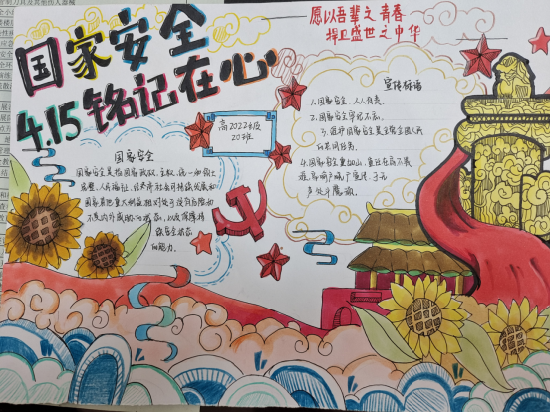 国家安全
4.15 铭记在心
愿以吾辈之青春
捍卫盛世之中华
高2022级
20班
宣传标语
1.国家安全,人人有责。
2.国家安全牢记不忘。
3.维护国家安全是全国人民
4.国家安全重如山,责任在高不
国家安全
国家安全是指国家政权、主权、统一和领土
完整、人民福祉、经济社会可持续发展和
国家其他重大利益相对处于没有危险和
不受内外威胁的状态,以及保障持
续安全状态
的能力。